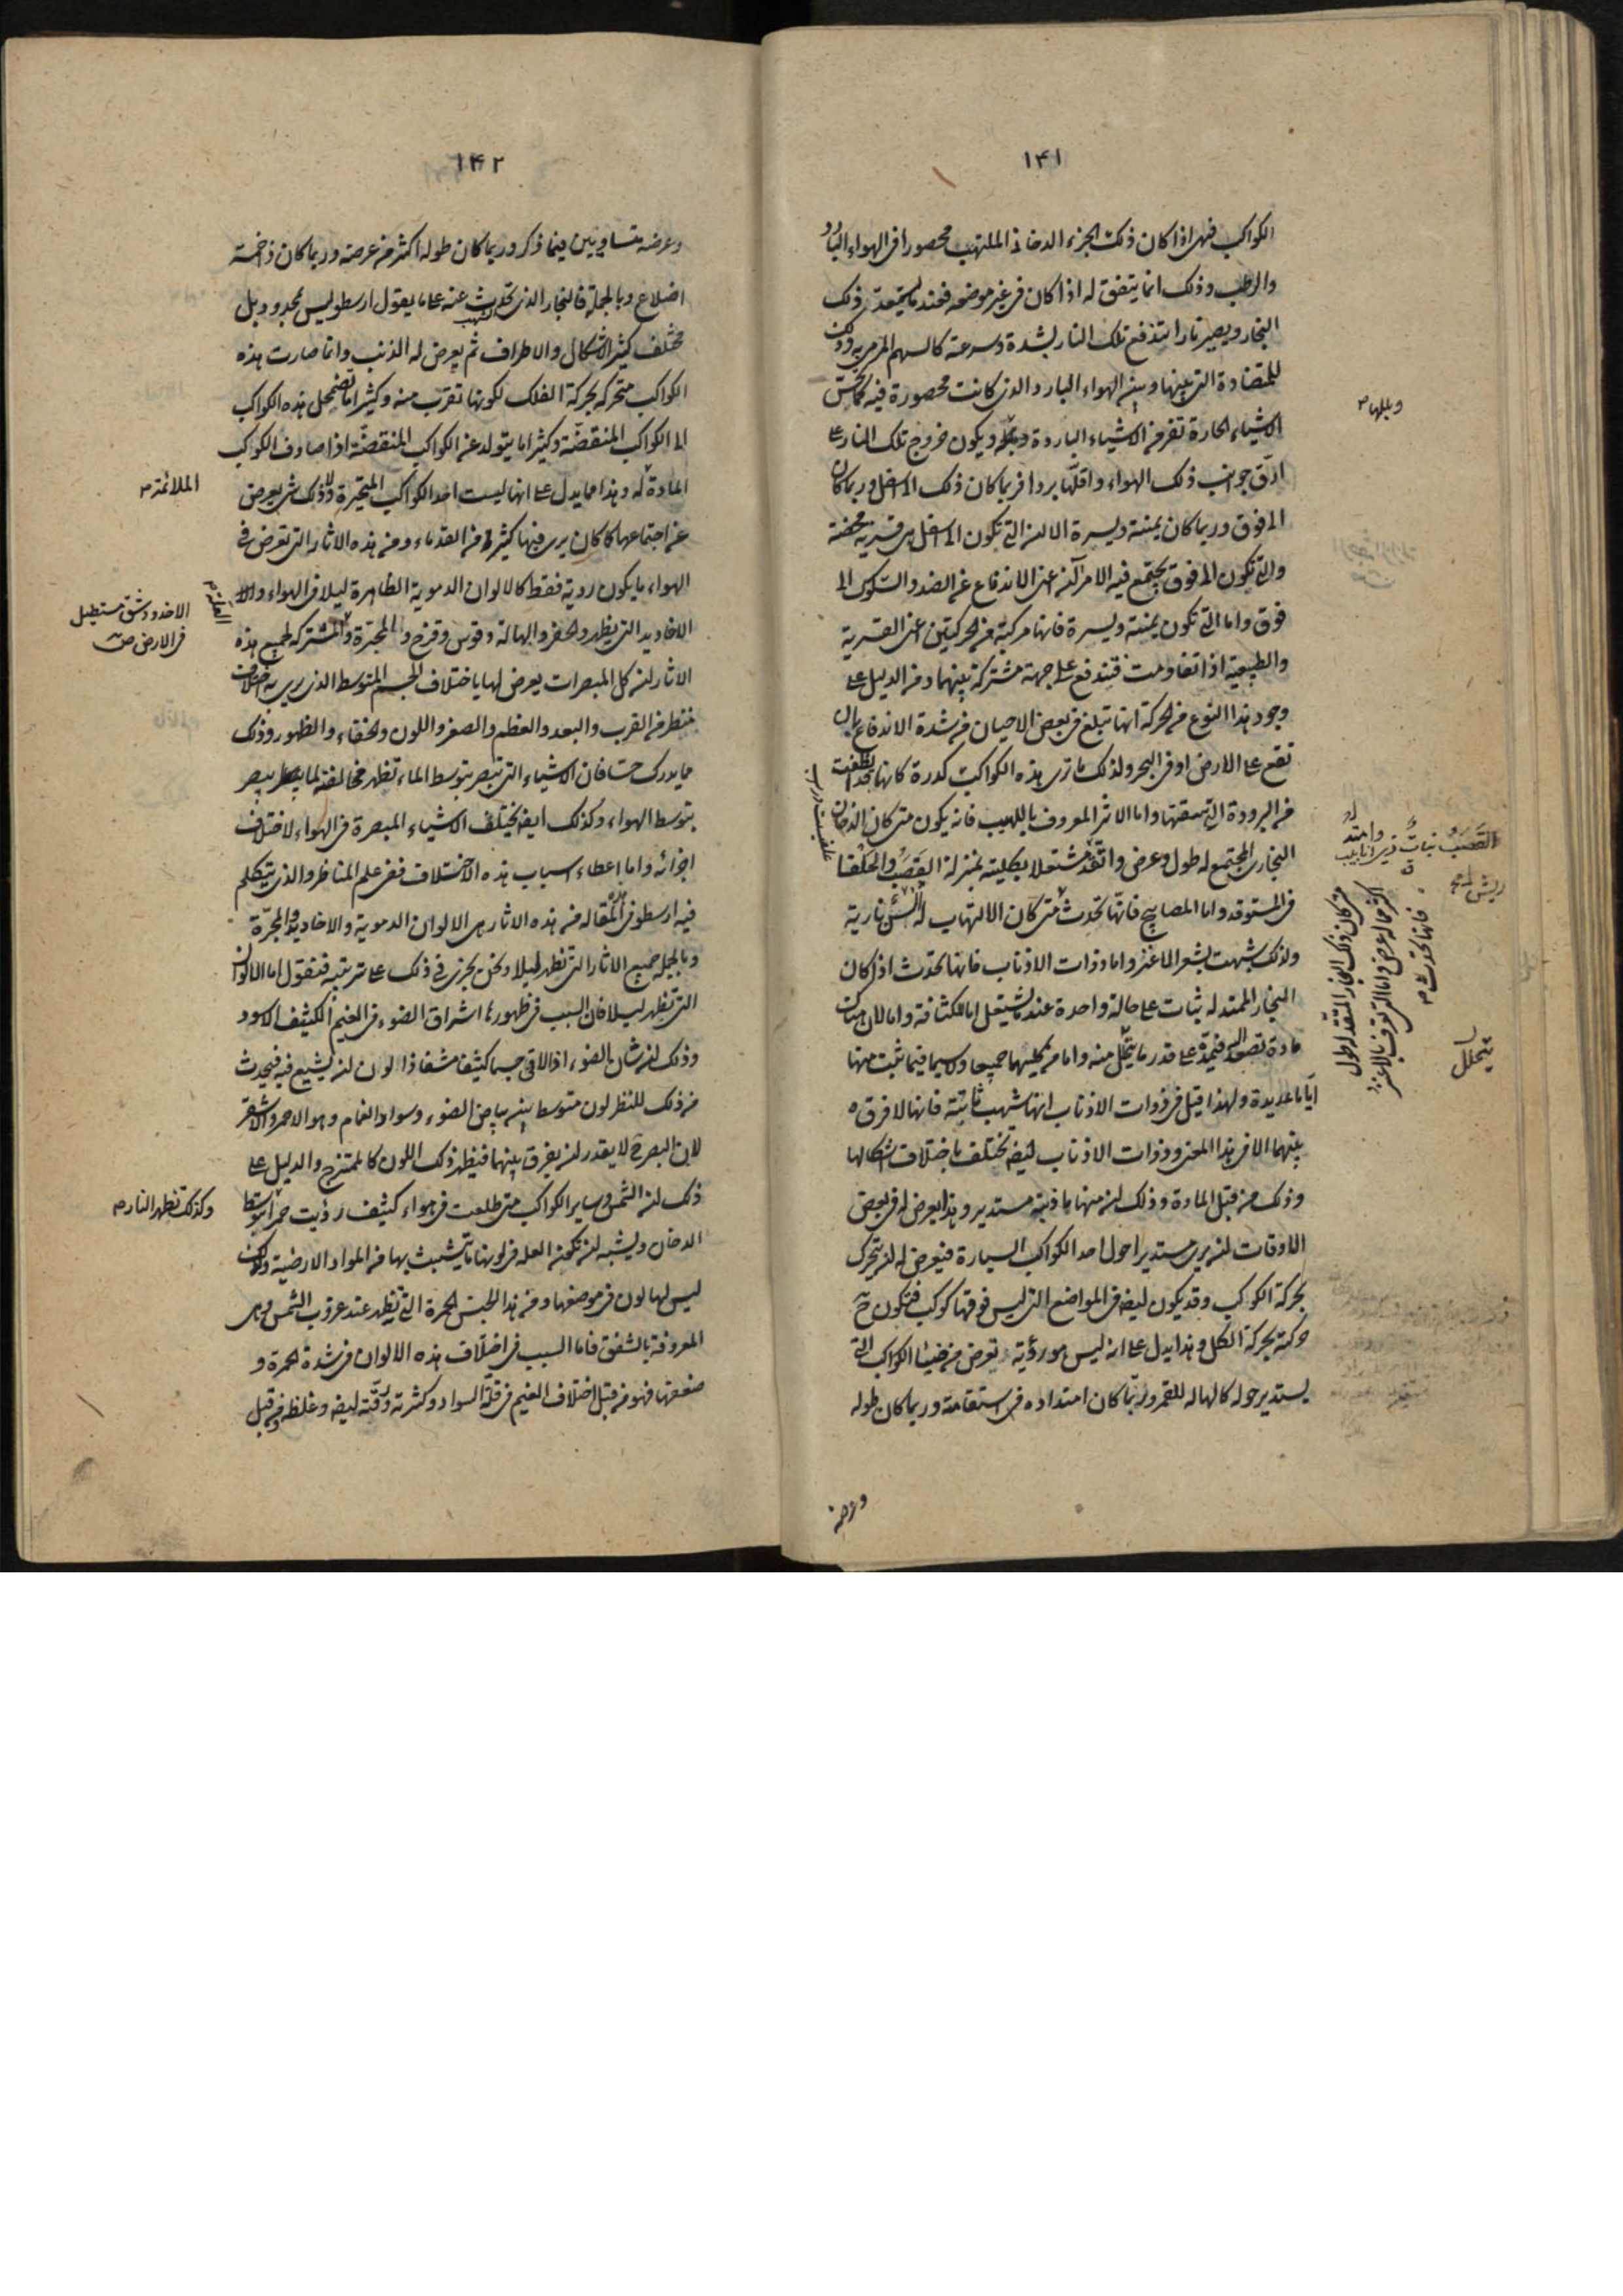 ١٤١
الكواكب فهى اذا كان ذلك الجزء الدخانى الملتهب محصورا فى الهواء البارد
والرطب وذلك انما يتفق له اذا كان فى غير موضعه فعند ما يستعد ذلك
البخار ويصير نارا تندفع تلك النار بشدة وسرعة كالسهم المرمى به وذلك
للمتضادة التى بينها وبين الهواء البارد والذى كانت محصورة فيه كما تحس
الاشياء الحارة تفر من الاشياء الباردة وبجله ويكون خروج تلك النار على
ادق جوانب ذلك الهواء واقلها بردا فربما كان ذلك الى اسفل وربما كان
الى فوق وربما كان يمنة ويسرة الا ان التى تكون الى اسفل هى قسرية محضة
والتى تكون الى فوق يجتمع فيه الامر آن اعنى الاندفاع عن الضد والسلوك الى
فوق واما التى تكون يمنة ويسرة فانها مركبة من الحركتين اعنى القسرية
والطبيعية اذا تقاومت فتندفع على جهة مشتركة بينهما ومن الدليل على
وجود هذا النوع من الحركة انها تبلغ فى بعض الاحيان من شدة الاندفاع بان
تقع على الارض او فى البحر ولذلك ما ترى هذه الكواكب كدرة كانها قد انطفت
من البرودة التى تسقها واما الاثر المعروف باللهيب فانه يكون متى كان الدخان
البخارى المجتمع له طول وعرض واتقد مشتعلا بكليته بمنزلة القصب والحلفا
فى المستوقد واما المصابيح فانها تحدث متى كان الالتهاب له السن نارية
ولذلك شبهت بشعر الماعز واما ذوات الاذناب فانها تحدث اذا كان
البخار الممتد له ثبات على حالة واحدة عند ما يشتعل اما لكثافته واما لان هناك
مادة تصعد اليه فتمده على قدر ما يتحلل منه واما من كليهما جميعا ولا سيما فيما ثبت منها
اياما عديدة ولهذا قيل فى ذوات الاذناب انها شهب ثابتة فانها لا فرق
بينهما الا فى هذا المعنى وذوات الاذناب ايضه تختلف باختلاف اشكالها
وذلك من قبل المادة وذلك ان منها ما ذنبه مستدير وهذا يعرض له فى بعض
الاوقات ان يرى مستديرا حول احد الكواكب السيارة فيعرض له ان يتحرك
بحركة الكواكب وقد يكون ايضه فى المواضع التى ليس فوقها كوكب فتكون ح
حركته بحركة الكل وهذا يدل على انه ليس هو رؤية تعرض من ضياء الكواكب التى
يستدير حوله كالهاله للقمر وربما كان امتداده فى استقامة وربما كان طوله
وعرضه
وبللها م
القصب نبات ذى انابيب
ريش
فانها تحدث م
متى كان ذلك البخار المتقد له طول
اكثر مما له عرض واما التى تعرف بالاعنز
يتحلل
١٤٢
وعرضه متساويين فيما ذكر وربما كان طوله اكثر من عرضه وربما كان ذا خمسة
اضلاع وبالجملة فالبخار الذى تحدث عنه على ما يقول ارسطو ليس بمحدود بل
الشهب
مختلف كثير الاشكال والاطراف ثم يعرض له الذنب وانما صارت هذه
الكواكب متحركه بحركة الفلك لكونها تقرب منه وكثيرا ما تضمحل هذه الكواكب
الى الكواكب المنقضة وكثيرا ما يتولد عن الكواكب المنقضة اذا صادف الكوكب
المادة له وهذا مما يدل على انها ليست احد الكواكب المتحيرة ولا ذلك شى يعرض
عن اجتماعها كما كان يرى فيها كثير من القدماء ومن هذه الاثار التى تعرض فى
الهواء ما يكون رؤية فقط كالالوان الدموية الظاهرة ليلا فى الهواء والا
الاخاديد التى يظهر والحفر والهالة وقوس وقزح والمجترة والمشتركه لجميع هذه
الاثار ان كل المبصرات يعرض لها باختلاف الجسم المتوسط الذى يرى به اختلاف
منظر من القرب والبعد والعظم والصغر واللون والخفاء والظهور وذلك
مما يدرك حسا فان الاشياء التى تبصر بتوسط الماء تظهر مخالفة لما يبصر
بتوسط الهواء وكذلك ايضه تختلف الاشياء المبصرة فى الهواء لاختلاف
اجزائه واما اعطاء اسباب هذه الاختلاف ففى علم المناظر والذى يتكلم
فيه ارسطو فى هذه المقاله من هذه الاثار هى الالوان الدموية والاخاديد والمجرة
وبالجملة جميع الاثار التى تظهر ليلا ونحن نجرى فى ذلك على ترتيبه فنقول اما الالوان
التى تظهر ليلا فان السبب فى ظهورها اشراق الضوء فى الغيم الكثيف الاسود
وذلك ان شان الضوء اذا لاقى جسما كثيفا مشفا ذا لون ان يشيع فيه فيحدث
من ذلك للنظر لون متوسط بين بياض الضوء وسواد الغمام وهو الاحمر والاشقر
لان البصر لا يقدر ان يفرق بينهما فيظهر ذلك اللون كالممتزج والدليل على
ذلك ان الشمس وساير الكواكب متى طلعت فى هواء كثيف رؤيت حمرا بتوسط
الدخان ويشبه ان تكون العله فى لونها ما تتشبث بها من المواد الارضية ولكن
ليس لها لون فى موضعها ومن هذا الجنس الحمرة التى تظهر عند غروب الشمس وهى
المعروفة بالشفق فاما السبب فى اختلاف هذه الالوان فى شدة الحمرة و
ضعفها فهو من قبل اختلاف الغيم فى قلة السواد وكثرته ورقته ايضه وغلظه ومن قبل
الملائمة م
الاخدود شق مستطيل
فى الارض ص
وكذلك تظهر النار م